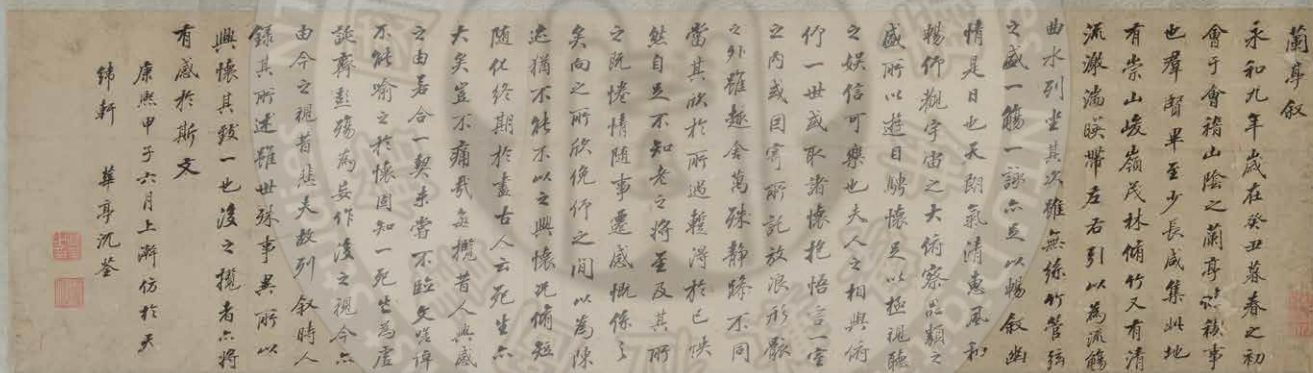 蘭亭叙
永和九年歲在癸丑暮春之初
會于會稽山陰之蘭亭修禊事
也羣賢畢至少長咸集此地
有崇山峻嶺茂林脩竹又有清
流激湍暎帶左右引以為流觴
曲水列坐其次雖無絲竹管絃
之盛一觴一詠亦足以暢叙幽
情是日也天朗氣清惠風和
暢仰觀宇宙之大俯察品類之
盛所以遊目騁懷足以極視聽
之娛信可樂也夫人之相與俯
仰一世或取諸懷抱悟言一室
之內或因寄所託放浪形骸
之外雖趣舍萬殊靜躁不同
當其欣於所遇暫得於己快
然自足不知老之將至及其所
之既惓情隨事遷感慨係之
矣向之所欣俛仰之間以為陳
迹猶不能不以之興懷況脩短
隨化終期於盡古人云死生亦
大矣豈不痛哉每攬昔人興感
之由若合一契未嘗不臨文嗟悼
不能喻之於懷固知一死生為虛
誕齊彭殤為妄作後之視今亦
由今之視昔悲夫故列叙時人
錄其所述雖世殊事異所以
興懷其致一也後之攬者亦將
有感於斯文
康熙甲子六月上澣仿於天
緯軒 華亭沈荃